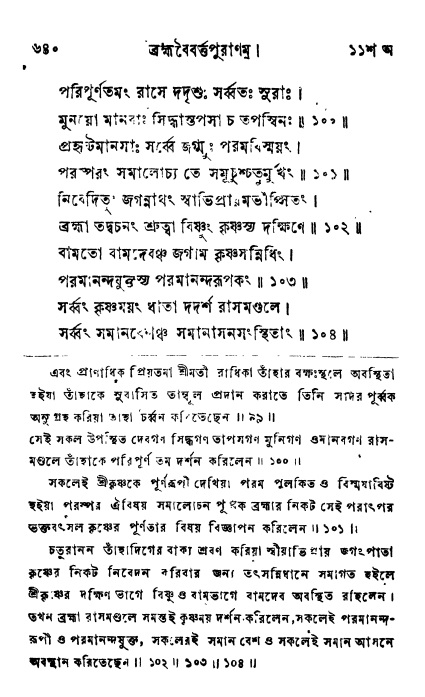 ৬৪০ ব্রহ্মবৈবর্ত্তপুরাণম্। ১১শ অ
পরিপূর্ণতমং রাসে দদৃশুঃ সর্ব্বতঃ সুরাঃ।
মুনয়ো মানবাঃ সিদ্ধাস্তপসা চ তপস্বিনঃ॥ ১০০॥
প্রহৃষ্টমানসাঃ সর্ব্বে জগ্মুঃ পরমবিস্ময়ং।
পরস্পরং সমালোচ্য তে সমূচুশ্চতুর্মুখং॥ ১০১॥
নিবেদিতুং জগন্নাথং স্বাভিপ্রায়মভীপ্সিতং।
ব্রহ্মা তদ্বচনং শ্রুত্বা বিষ্ণুং কৃষ্ণস্য দক্ষিণে॥ ১০২॥
বামতো বামদেবঞ্চ জগাম কৃষ্ণসন্নিধিং।
পরমানন্দযুক্তস্য পরমানন্দরূপকং॥ ১০৩॥
সর্ব্বং কৃষ্ণময়ং ধাতা দদর্শ রাসমণ্ডলে।
সর্ব্বং সমানবেশঞ্চ সমানাসনসংস্থিতাং॥ ১০৪॥
এবং প্রাণাধিক প্রিয়তমা শ্রীমতী রাধিকা তাঁহার বক্ষঃস্থলে অবস্থিতা
হইয়া তাঁহাকে সুবাসিত তাম্বূল প্রদান করাতে তিনি সাদর পূর্ব্বক
অনুগ্রহ করিয়া তাহা চর্ব্বন করিতেছেন॥ ৯৯॥
সেই সকল উপস্থিত দেবগণ সিদ্ধগণ তাপসগণ মুনিগণ ওমানবগণ রাস-
মণ্ডলে তাঁহাকে পরিপূর্ণ তম দর্শন করিলেন॥ ১০০॥
সকলেই শ্রীকৃষ্ণকে পূর্ণরূপী দেখিয়া পরম পুলকিত ও বিস্ময়াবিষ্ট
হইয়া পরস্পর ঐবিষয় সমালোচন পূর্ব্বক ব্রহ্মার নিকট সেই পরাৎপর
ভক্তবৎসল কৃষ্ণের পূর্ণতার বিষয় বিজ্ঞাপন করিলেন॥ ১০১॥
চতুরানন তাঁহাদিগের বাক্য শ্রবণ করিয়া স্বীয়াভিপ্রায় জগৎপাতা
কৃষ্ণের নিকট নিবেদন করিবার জন্য তৎসন্নিধানে সমাগত হইলে
শ্রীকৃষ্ণের দক্ষিণ ভাগে বিষ্ণু ও বামভাগে বামদেব অবস্থিত রহিলেন।
তখন ব্রহ্মা রাসমণ্ডলে সমস্তই কৃষ্ণময় দর্শন করিলেন,সকলেই পরমানন্দ-
রূপী ও পরমানন্দযুক্ত, সকলেরই সমান বেশ ও সকলেই সমান আসনে
অবস্থান করিতেছেন॥ ১০২॥ ১০৩॥ ১০৪॥